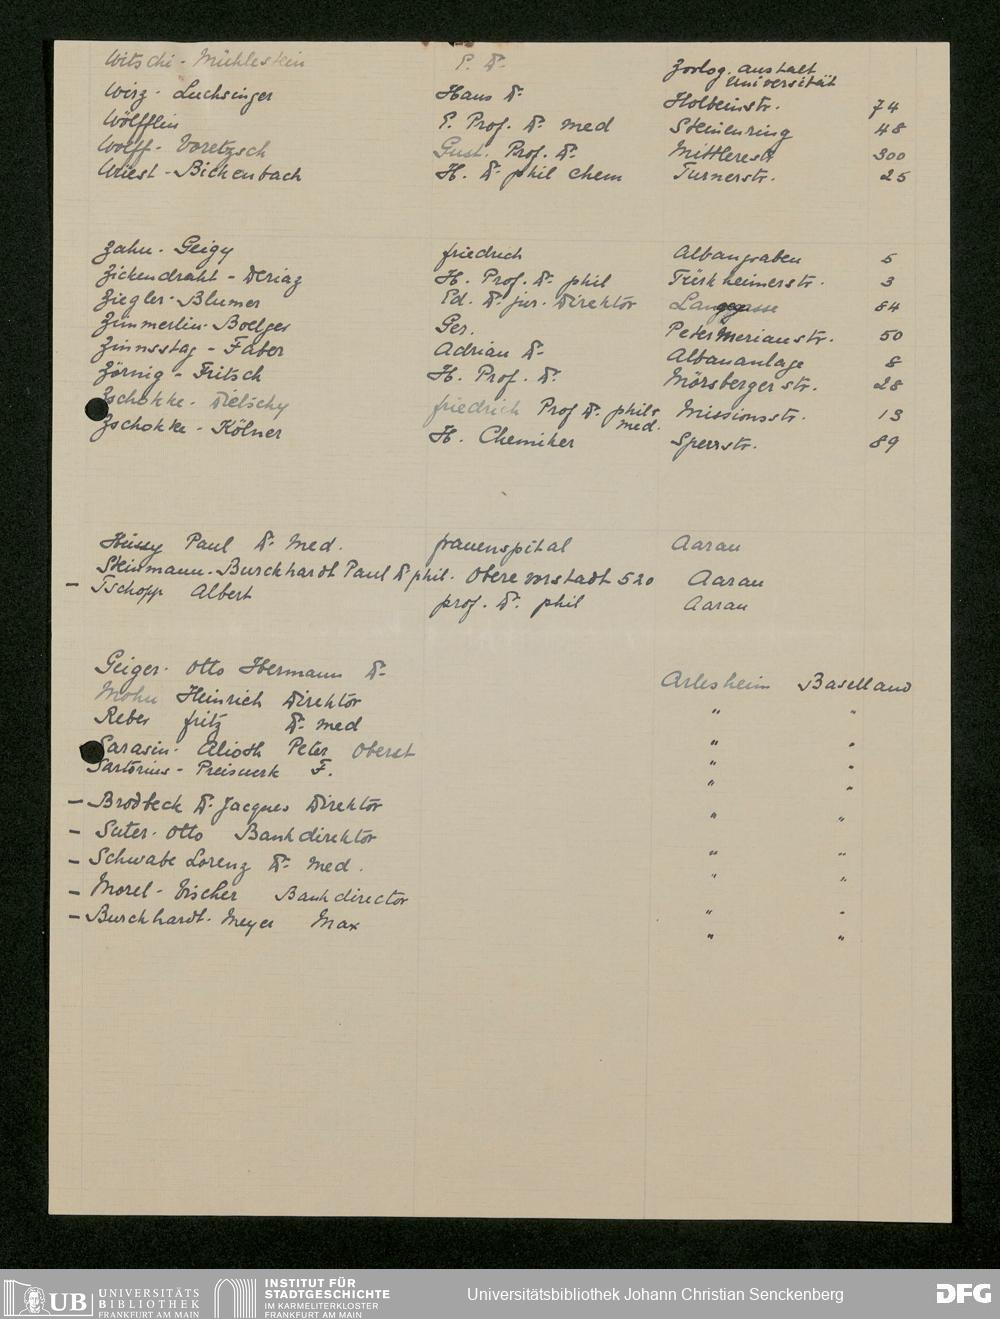 Witschi - Mühlestein E. Dr. Zoolog. Anstalt Universität
Wirz - Luchsinger Hans Dr. Holbeinstr. 74
Wölfflin E. Prof. Dr. med Steinenring 48
Wolff - Voretzsch Gust. Prof. Dr. Mittlerestr 300
Wüest - Bickenbach H. Dr. phil Chem Turnerstr. 25
Zahn - Geigy Friedrich Albangraben 5
Zickendraht - Deriaz H. Prof. Dr. phil Türkheimerstr. 3
Ziegler - Blumer Ed. Dr. jur. Direktor Langegasse 84
Zimmerlin - Boelger Ger. Peter Merianstr. 50
Zinnsstag - Faber Adrian Dr. Albananlage 8
Zörnig - Fritsch H. Prof. Dr. Mörsbergerstr. 28
Zschokke - Dietschy Friedrich Prof Dr. phil & med. Missionsstr. 13
Zschokke - Kölner H. Chemiker Sperrstr. 89
Hüssy Paul Dr. Med. Frauenspital Aarau
Steinmann - Burckhardt Paul Dr phil. Obere Vorstadt 520 Aarau
– Tschopp Albert prof. Dr. phil Aarau
Geiger - Otto Hermann Dr. Arlesheim Baselland
Mohn Heinrich Direktor " "
Reber Fritz Dr. med " "
Sarasin - Alioth Peter Oberst " "
Sartorius - Preiswerk F. " "
– Brodbeck Dr. Jacques Direktor " "
– Suter - Otto Bankdirektor " "
– Schwabe Lorenz Dr. med. " "
– Morel - Vischer Bankdirector " "
– Burckhardt - Meyer Max " "
UB UNIVERSITÄTS
BIBLIOTHEK
FRANKFURT AM MAIN
INSTITUT FÜR
STADTGESCHICHTE
IM KARMELITERKLOSTER
FRANKFURT AM MAIN
Universitätsbibliothek Johann Christian Senckenberg
DFG